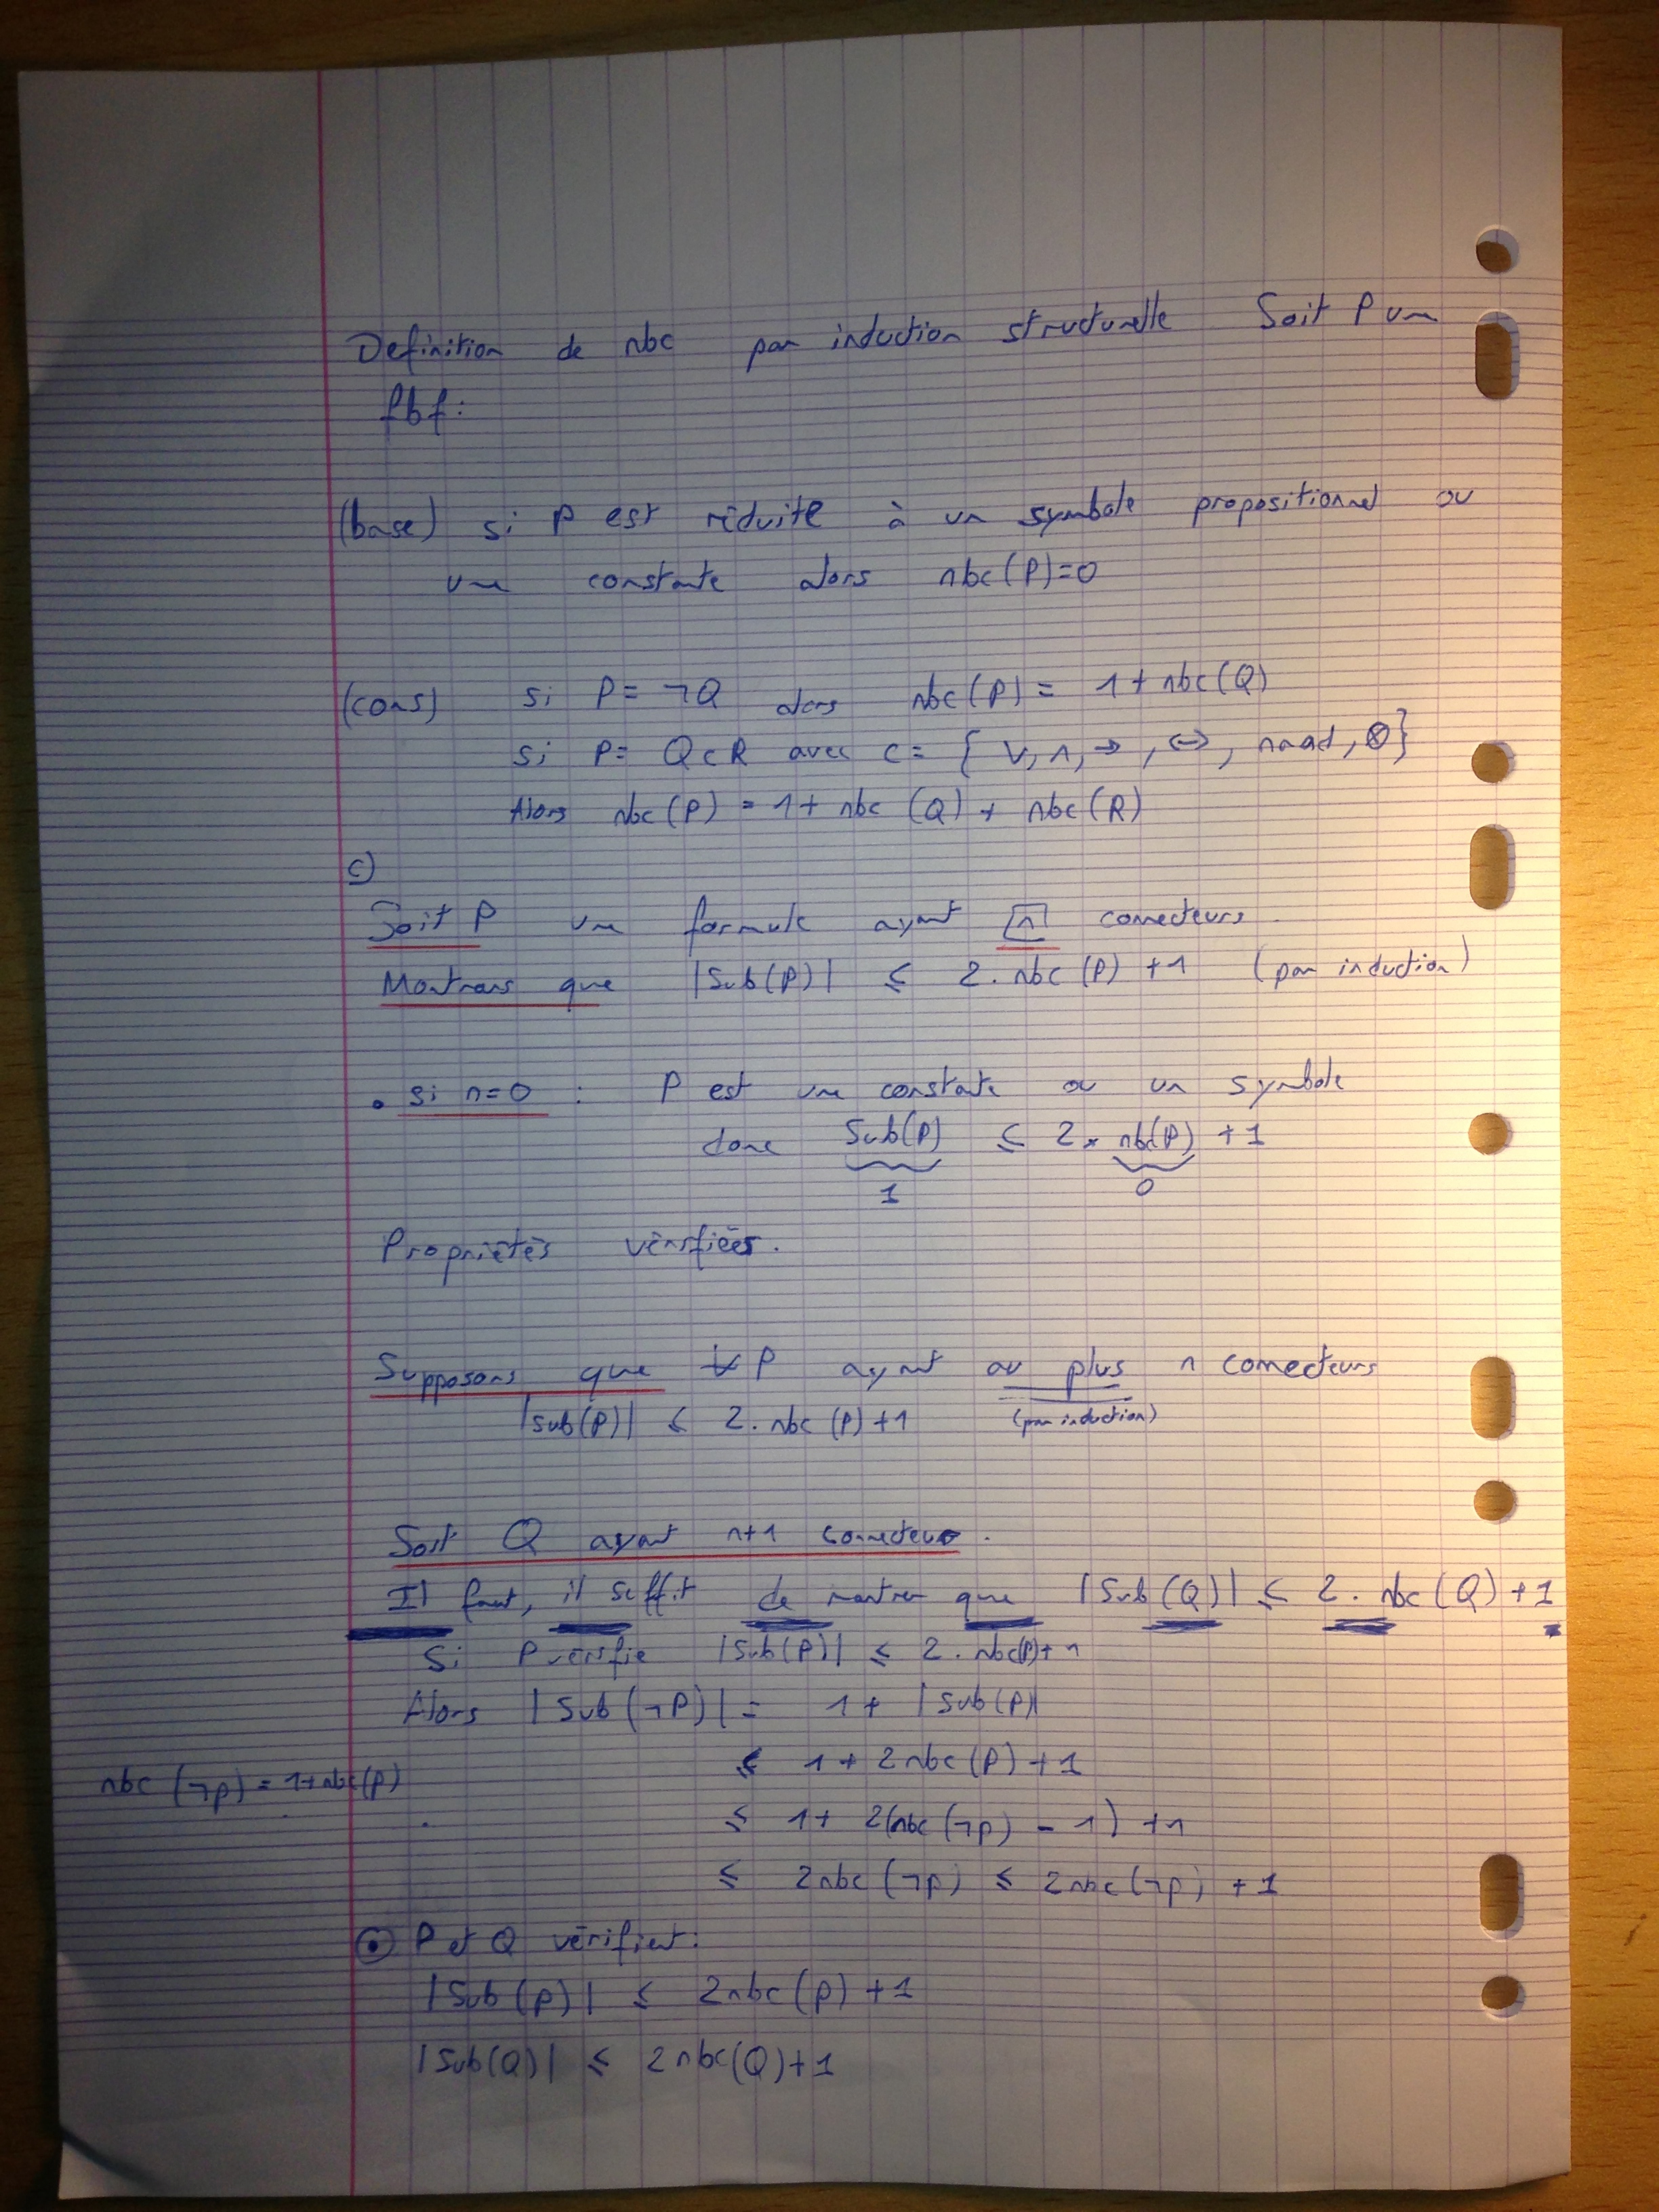 Definition de nbc par induction structurelle Soit P un
fbf:
(base) si P est réduite à un symbole propositionnel ou
une constante alors nbc(P)=0
(cons) si P = ¬Q alors nbc(P) = 1+nbc(Q)
si P = QcR avec c = {∨, ∧, →, ↔, nand, ⊗}
Alors nbc(P) = 1+ nbc (Q) + nbc(R)
c)
Soit P une formule ayant n connecteurs
Montrons que |Sub(P)| ≤ 2. nbc (P) +1 (par induction)
. si n=0 : P est une constante ou un symbole
donc Sub(P) ≤ 2 × nbc(P) +1
1 0
Propriétés vérifiées.
Supposons que ∀P ayant au plus n connecteurs
|sub(P)| ≤ 2. nbc (P) +1 (par induction)
Soit Q ayant n+1 connecteurs.
Il faut, il suffit de montrer que |Sub(Q)| ≤ 2. nbc(Q)+1
Si P vérifie |Sub(P)| ≤ 2. nbc(P)+1
Alors |Sub(¬P)| = 1+ |Sub(P)|
≤ 1+ 2nbc(P) +1
nbc (¬P) = 1+nbc(P)
≤ 1+ 2(nbc(¬P) - 1) +1
≤ 2nbc(¬P) ≤ 2nbc(¬P) +1
⊙ P et Q vérifient:
|Sub(P)| ≤ 2nbc(P)+1
|Sub(Q)| ≤ 2nbc(Q)+1